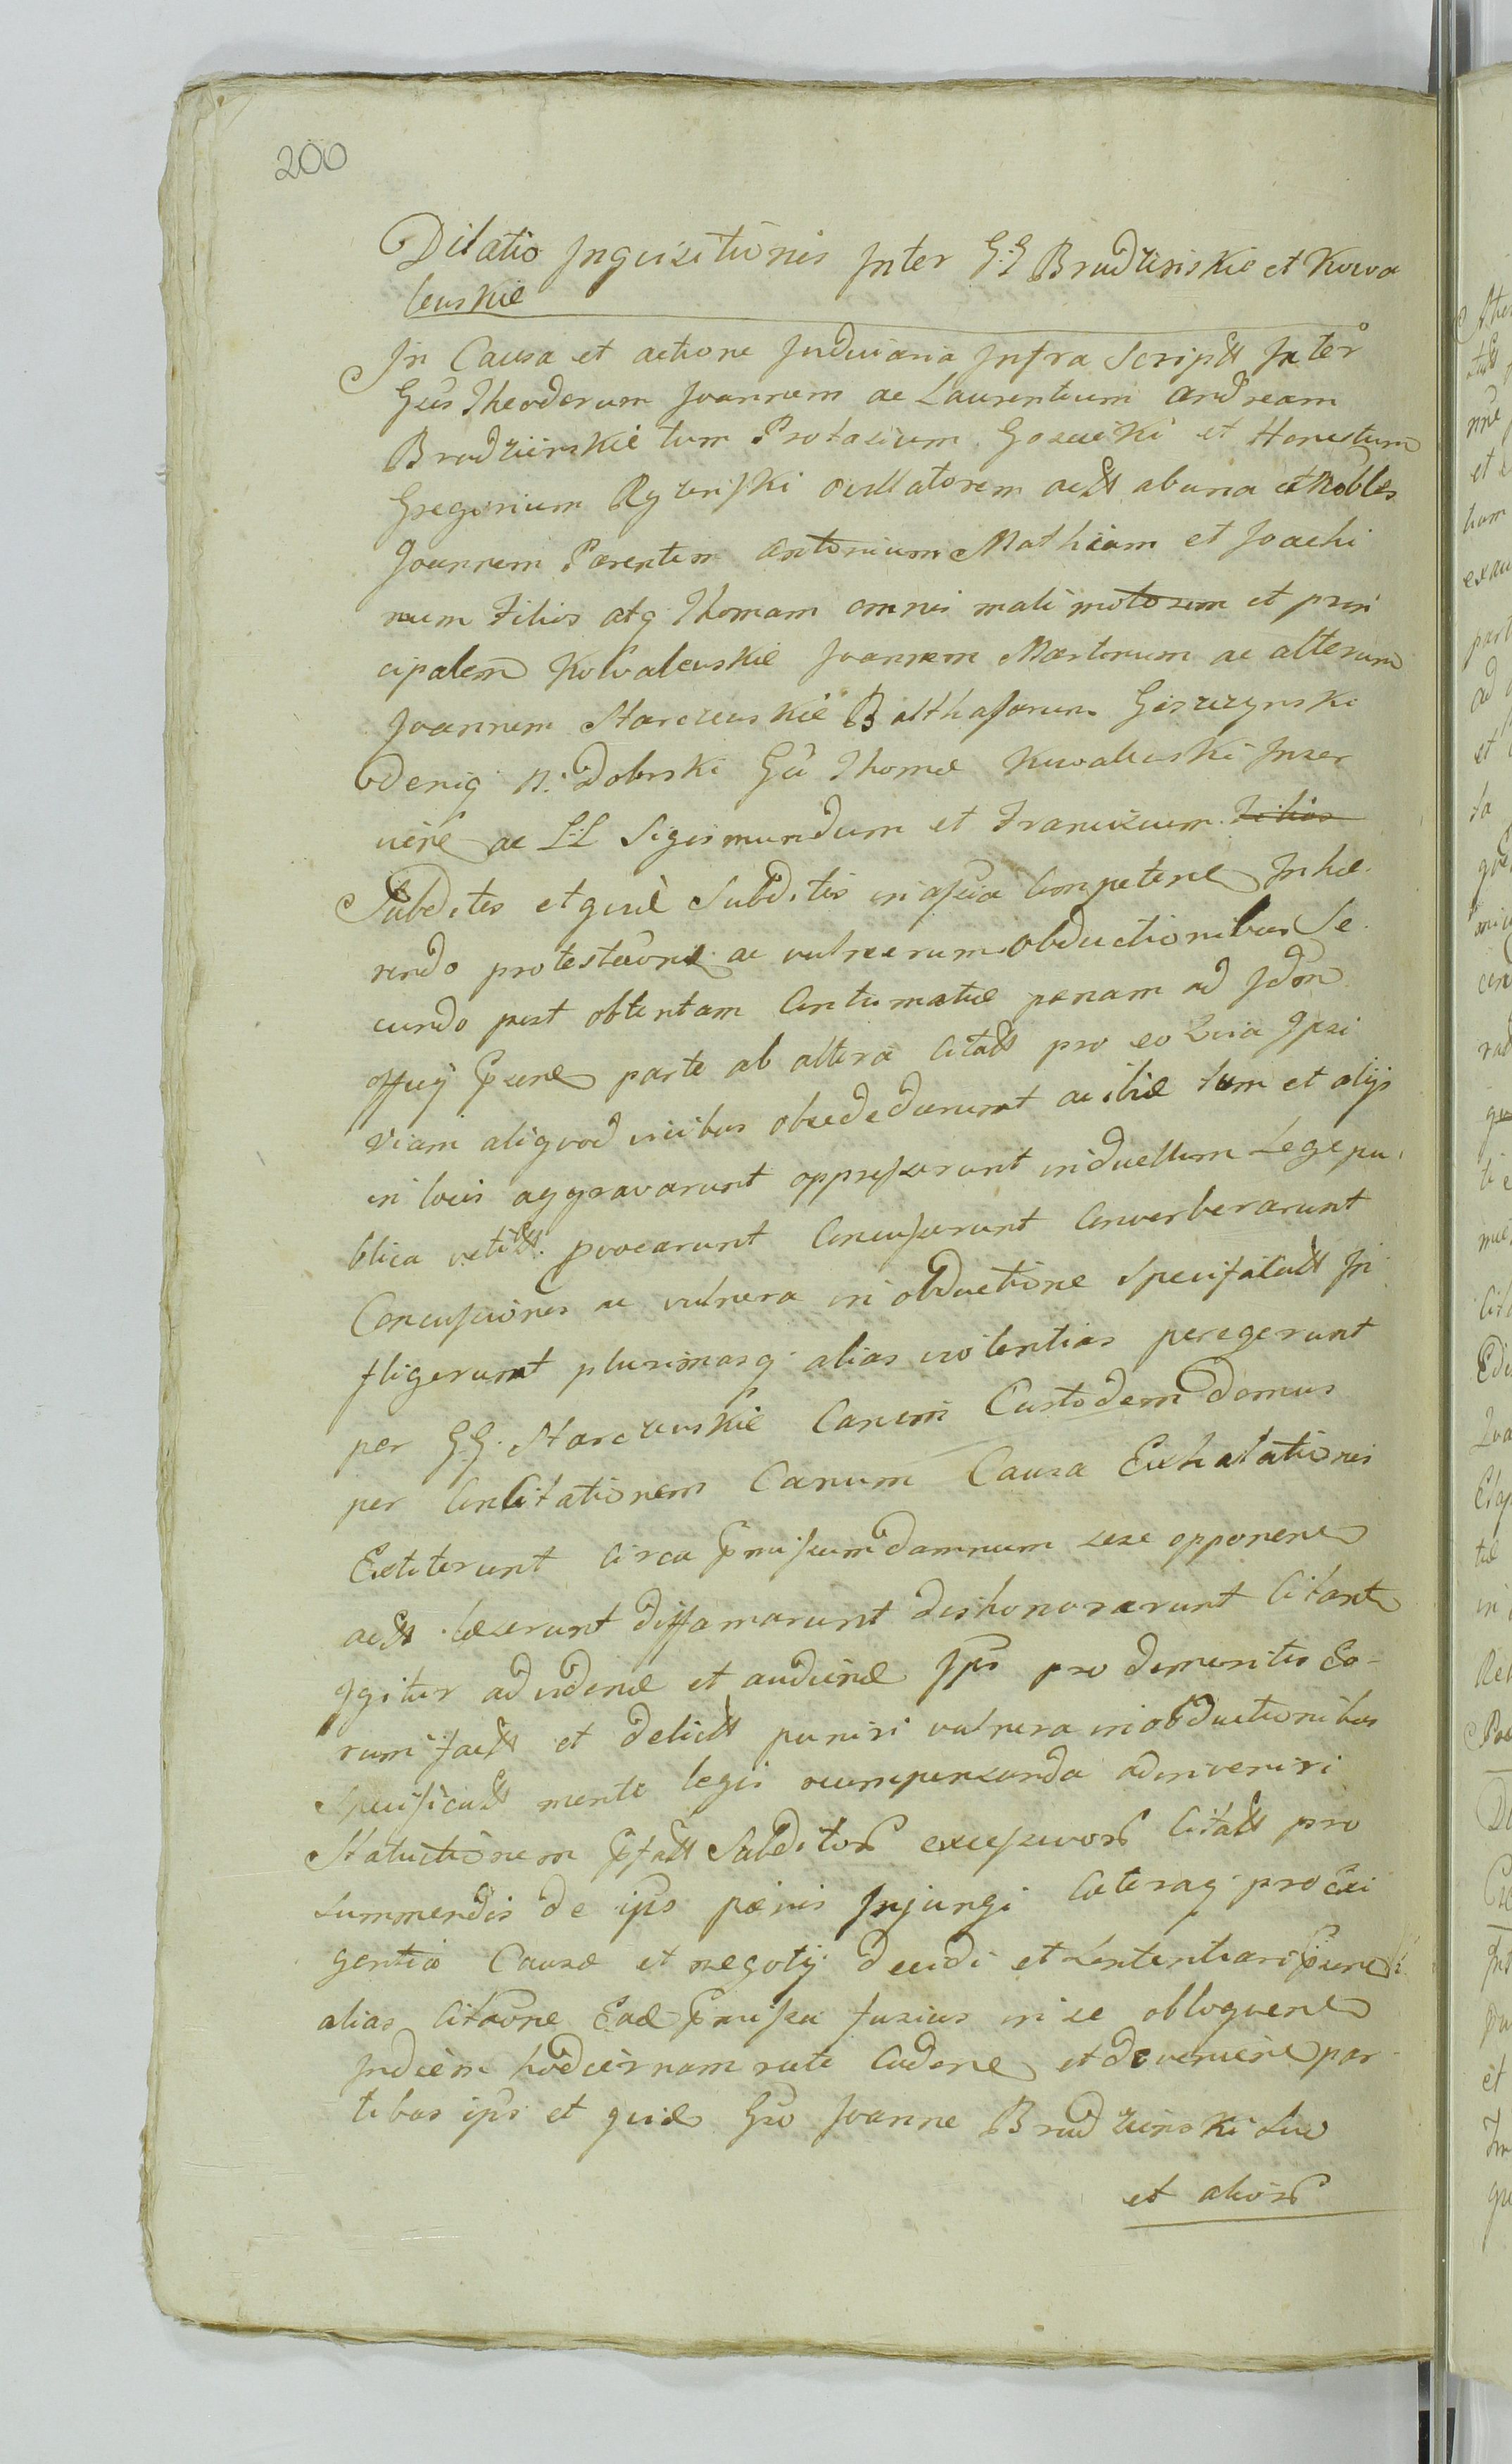 200
Dilatio Inquisitionis Inter G:G Brudzinskie et Kowa
lewskie
In Causa et actione Judiciaria Infra Script Inter
Gsis Theodorum Joannem ac Laurentium Andream
Brudzinskie tum Protasium et Honestum
Gregorium Ryzinski actt ab una et Nobles
Joannem Parentem Antonium Mathiam et Joachi
mum Filios atq Thomam omnis mali motorem et prin
cipalem Kowalewskie Joannem Martinum ac alterum
Joannem Starczewskie Balthasarum Giszczynski
deniq N: Dobrski Gsi Thomæ Kowalewski Inser
uiẽ ac LL Sigismundum et Franciscum Filios
Subditos et quidẽ Subditis in assia Competenẽ Inhæ
rendo protestaoni ac vulnerum obductionibus Se
cundo post obtentam Contumatiæ pænam ad Idem
Officij parte ab altera Citatt pro eo Quia Ipsi
Viam aliquod vicibus obsededarunt ac ibidẽ tum et alijs
in locis aggravarunt oppresserunt in duellum Lege pu
blica vetitt provocarunt Concusserunt Converberarunt
Concussiones ac vulnera in obductione Specificatt In
fligerunt plurimasq alias violentias peregerunt
per G.G. Starczewskie Canem Custodem Domus
per Concitationem Canum Causa Exhalationis
Extiterunt Circa præmissum damnum sese opponenẽ
actt læserunt diffamarunt dishonorarunt Citant
Igitur ad videnđ et audienđ Ips pro demeritis Eo-
rum fact et delictt puniri vulnera in obductionibus
Specificatt mente legis recompensanda adinveniri
Statuitionem pfatt Subditor excessivor Citatt pro
summendis de ips pænis Injungi Cæteraq pro exi
gentia Causæ et negotij decidi et Sententiari
alias Citaone Eade præmissa fusius in se obloquenẽ
In diem hodiernam recte Cadenẽ et devenienẽ par
tibus ips et quidẽ Gso Joanne Brudzinski Suo
et alior